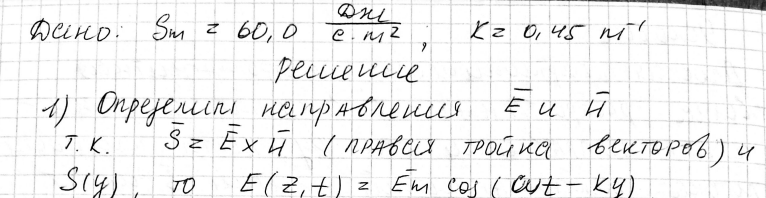 Дано: Sm = 60,0 Дж/с·м² ; K = 0,45 m⁻¹
Решение
1) Определим направления Ē и H̄
Т.К. S̄ = Ē × H̄ (правая тройка векторов) и
S(y), то E(z,t) = Ēm cos(ωt - Ky)